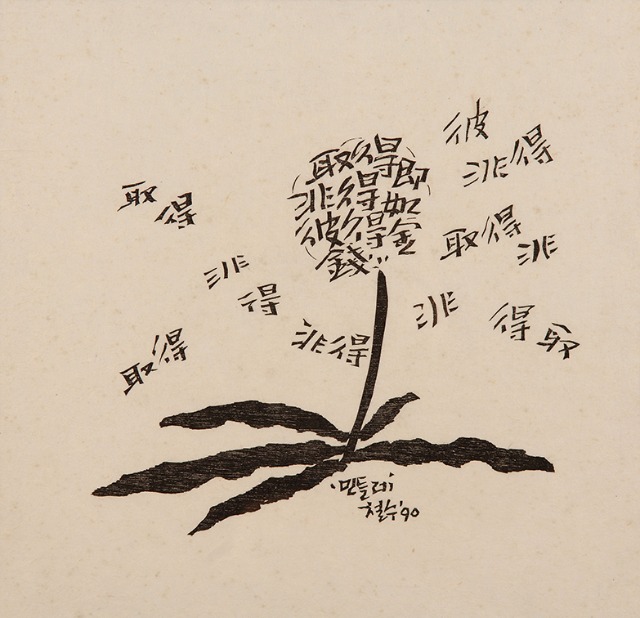 彼
非得
取得即
非得如
彼得金
錢
取得
取得
非
非
得
非
得取
非得
取得
'민들레'
철수 '90